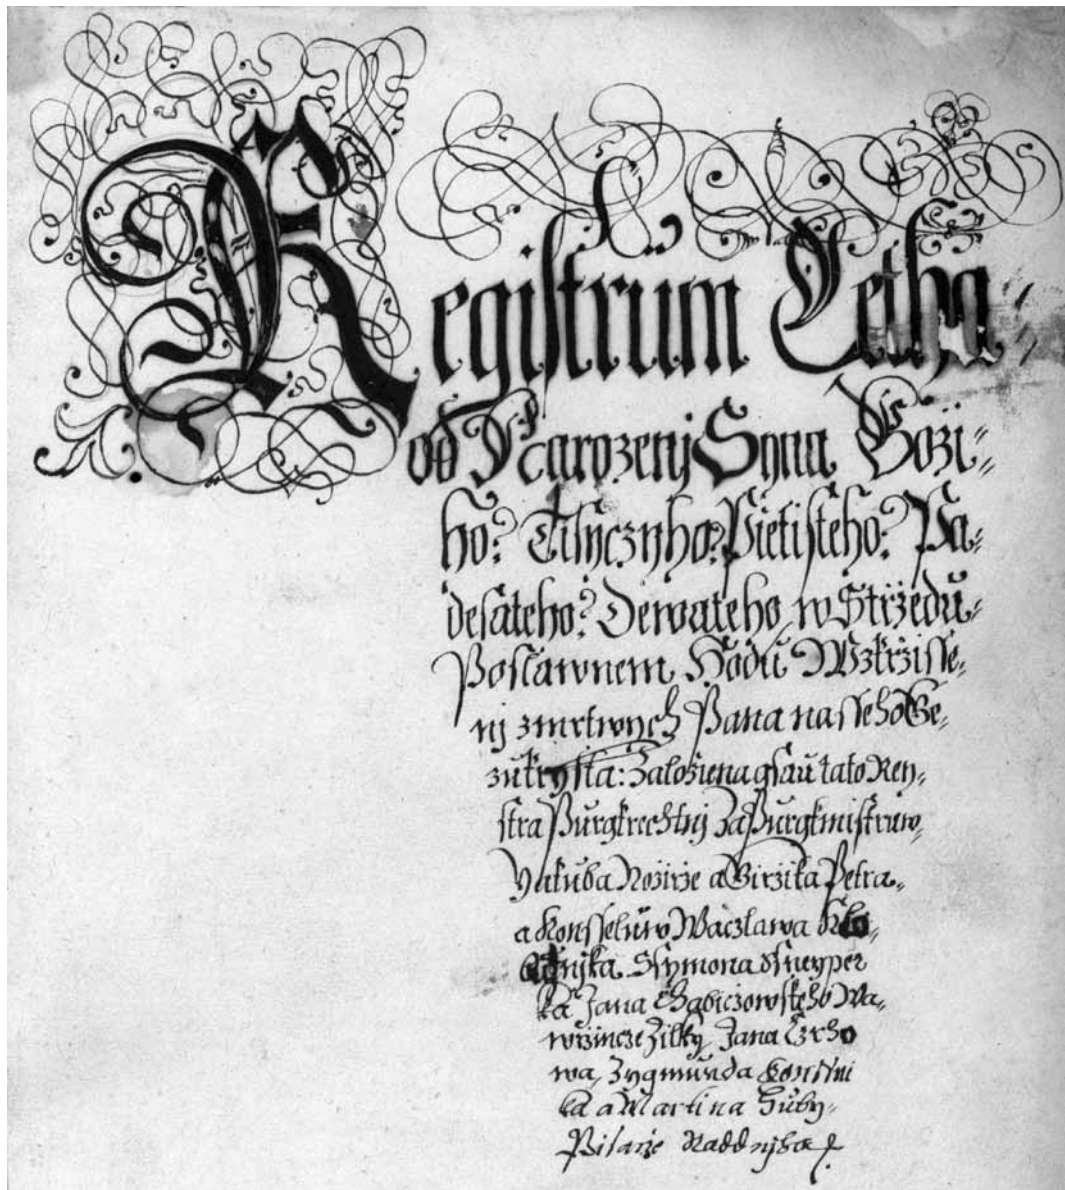 Registrum Letha
od Narozenj Syna Boži=
ho? Tisyczyho? Pietisteho? Pa=
desateho? Dewateho, w Stržedu=
Poslawnem Hodu Wzkržisse=
nj zmrtwych Pana nasseho Ge=
zukrysta: Založiena gsau tato Rey=
stra Purgkrechtnj Za Purgkmistruw=
Yakuba Nožirže a Giržika Petra=
a Konsseluw Waczlawa Klo=
Ssymona
ka Jana Chabiczowskeho Wa=
wržincze Žilky Jana Czrho
wa, Zygmunda Konssni
ka a Martina Huby=
Pisarže Raddnjho